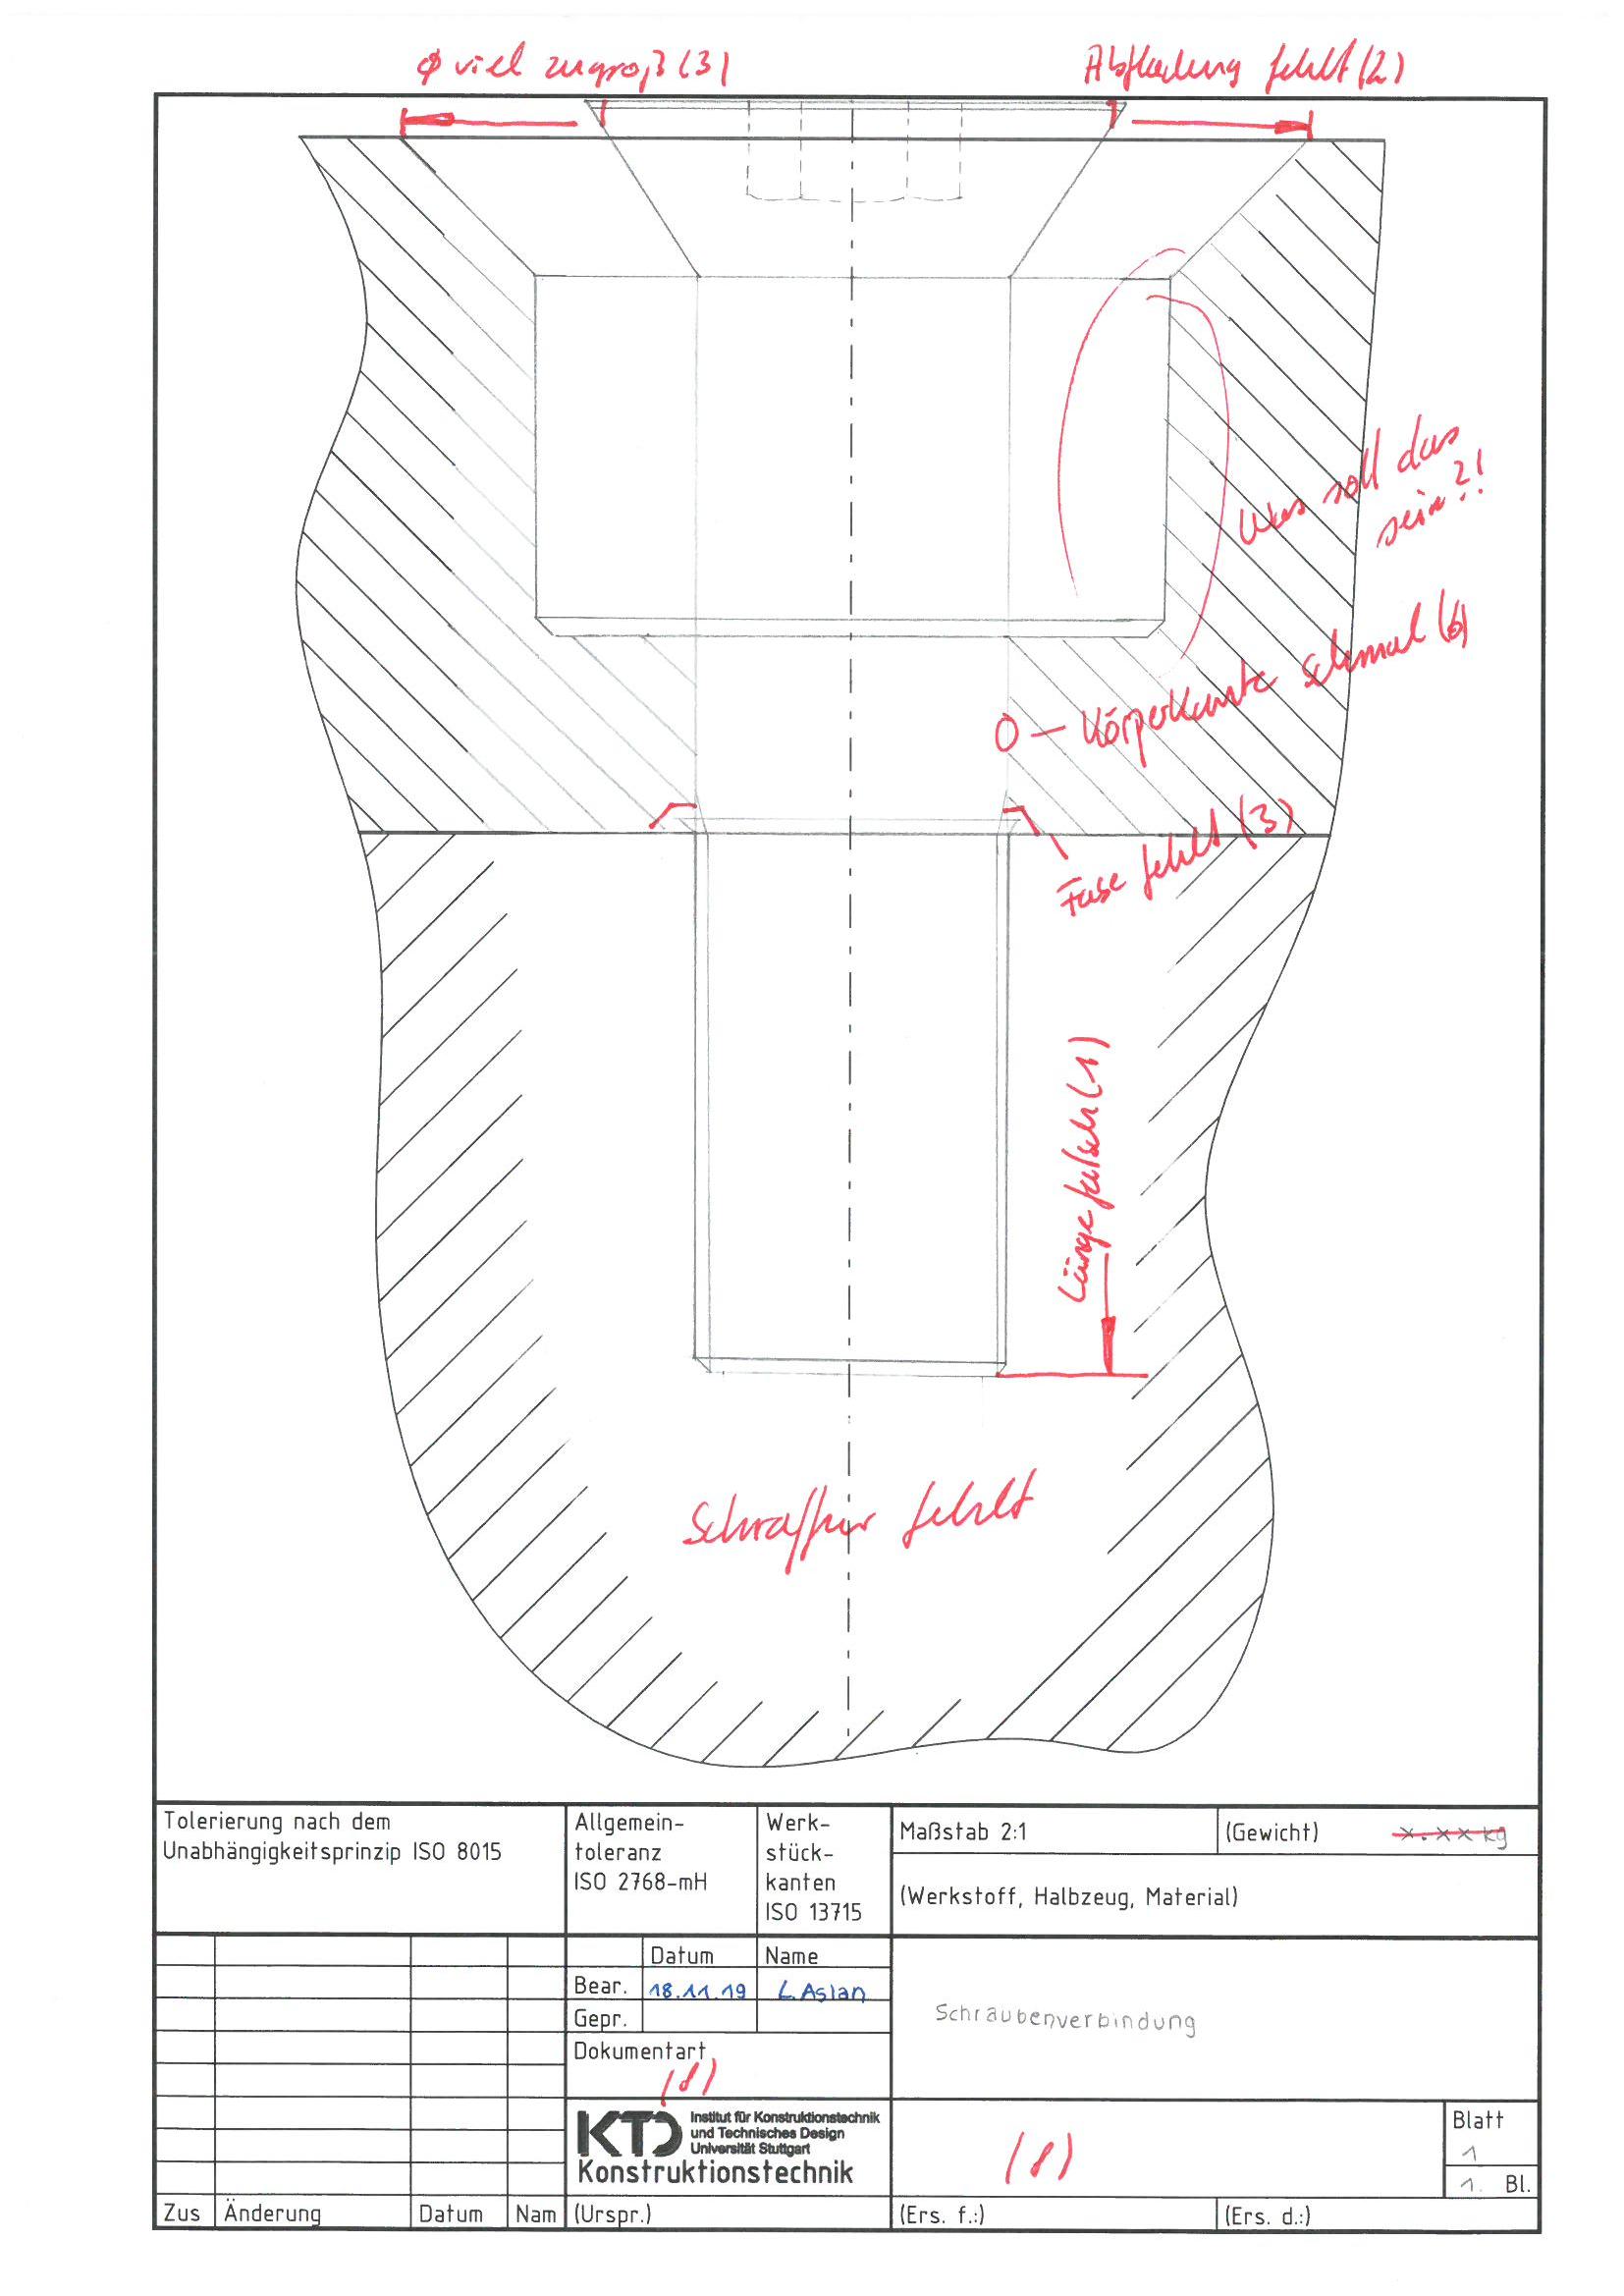 ϕ viel zu groß (3)
Abflachung fehlt (2)
Was soll das
sein?!
O – Körperkante schmal (6)
Fase fehlt (3)
Länge falsch (1)
Schraffur fehlt
Tolerierung nach dem
Unabhängigkeitsprinzip ISO 8015
Allgemein-
toleranz
ISO 2768-mH
Werk-
stück-
kanten
ISO 13715
Maßstab 2:1
(Gewicht) x.xx kg
(Werkstoff, Halbzeug, Material)
Datum Name
Bear. 18.11.19 L.Aslan
Gepr.
Dokumentart
Schraubenverbindung
KTD
Institut für Konstruktionstechnik
und Technisches Design
Universität Stuttgart
Konstruktionstechnik
Blatt
1
1. Bl.
Zus Änderung Datum Nam (Urspr.) (Ers. f.:) (Ers. d.:)